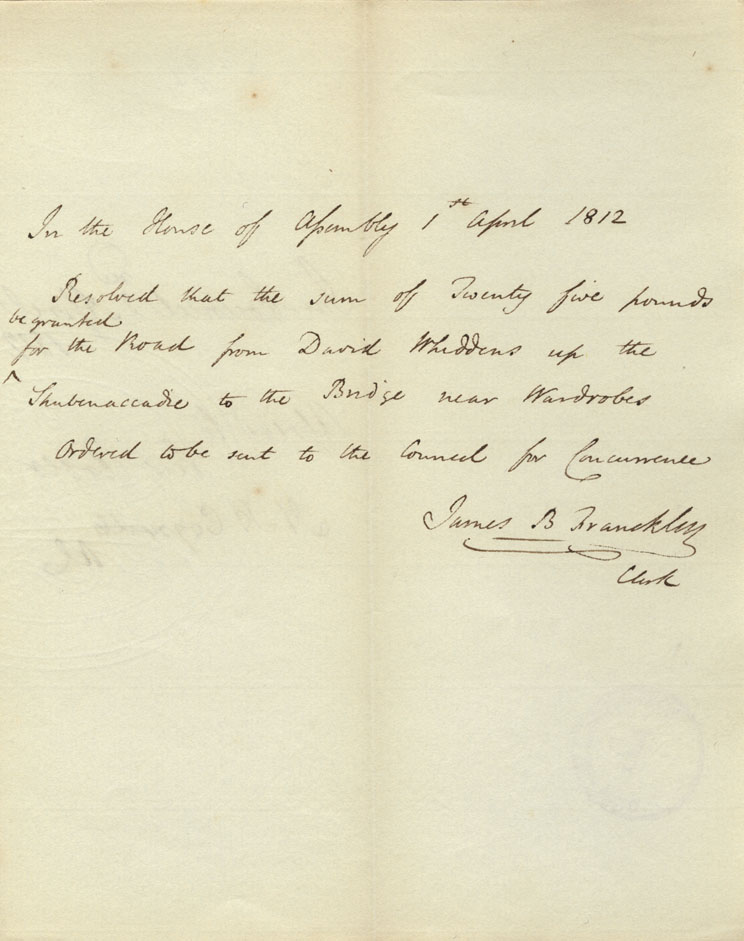 In the House of Assembly 1st April 1812
Resolved that the sum of Twenty five pounds
be granted
for the Road from David Whiddens up the
Shubenaccadie to the Bridge near Wardrobes
Ordered to be sent to the Council for Concurrence
James B Franckley
Clerk